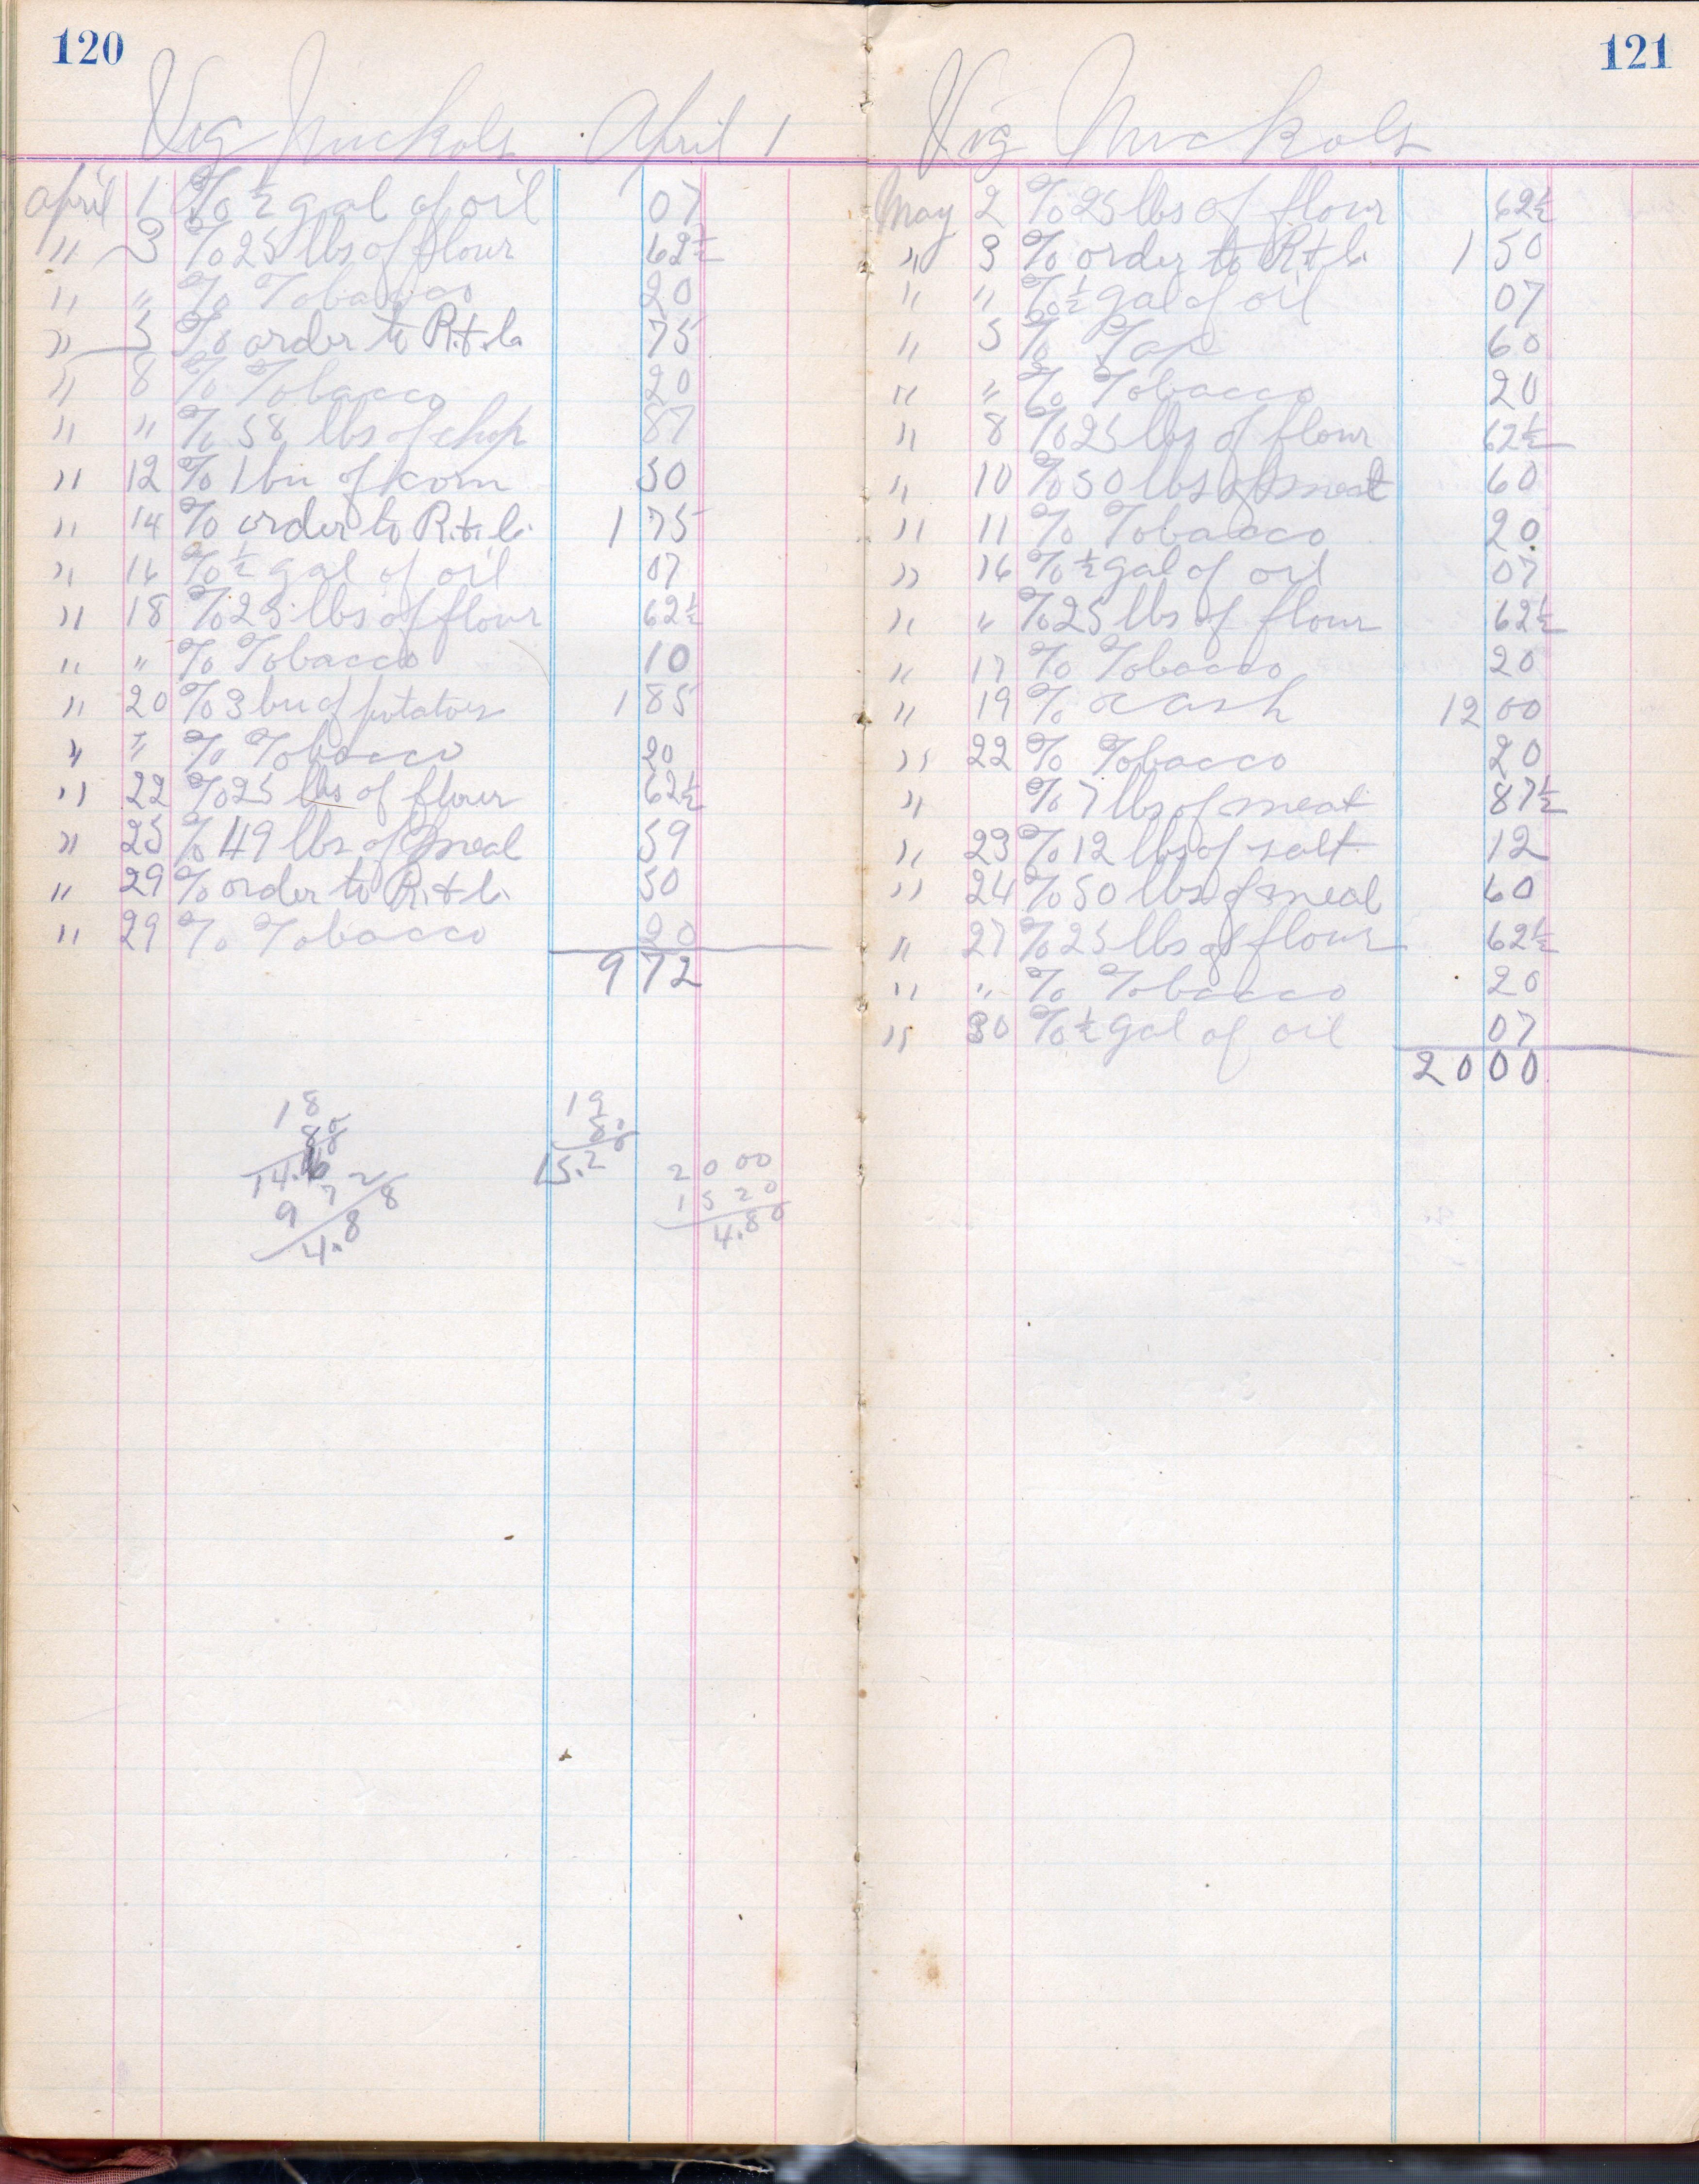 120
Vig Nuckols April 1
April 1 % ½ gal of oil 07
" 3 % 25 lbs of flour 62½
" " % Tobacco 20
" 5 % order to R. & Co. 75
" 8 % Tobacco 20
" " % 58 lbs of chop 87
" 12 % 1 bu of corn 50
" 14 % order to R. & Co. 1 75
" 16 % ½ gal of oil 07
" 18 % 25 lbs of flour 62½
" " % Tobacco 10
" 20 % 3 bu of potatoes 1 85
" " % Tobacco 20
" 22 % 25 lbs of flour 62½
" 25 % 49 lbs of meal 59
" 29 % order to R. & Co. 50
" 29 % Tobacco 20
9 72
18
14.
9 72
4. 8 8
19
80
15.2
20 00
15 20
4.80
121
Vig Nuckols
May 2 % 25 lbs of flour 62½
" 3 % order to R & Co. 1 50
" " % ½ gal of oil 07
" 5 % 60
" " % Tobacco 20
" 8 % 25 lbs of flour 62½
" 10 % 50 lbs of meal 60
" 11 % Tobacco 20
" 16 % ½ gal of oil 07
" " % 25 lbs of flour 62½
" 17 % Tobacco 20
" 19 % cash 12 00
" 22 % Tobacco 20
" % 7 lbs of meat 87½
" 23 % 12 lbs of salt 12
" 24 % 50 lbs of meal 60
" 27 % 25 lbs of flour 62½
" " % Tobacco 20
" 30 % ½ gal of oil 07
20 00